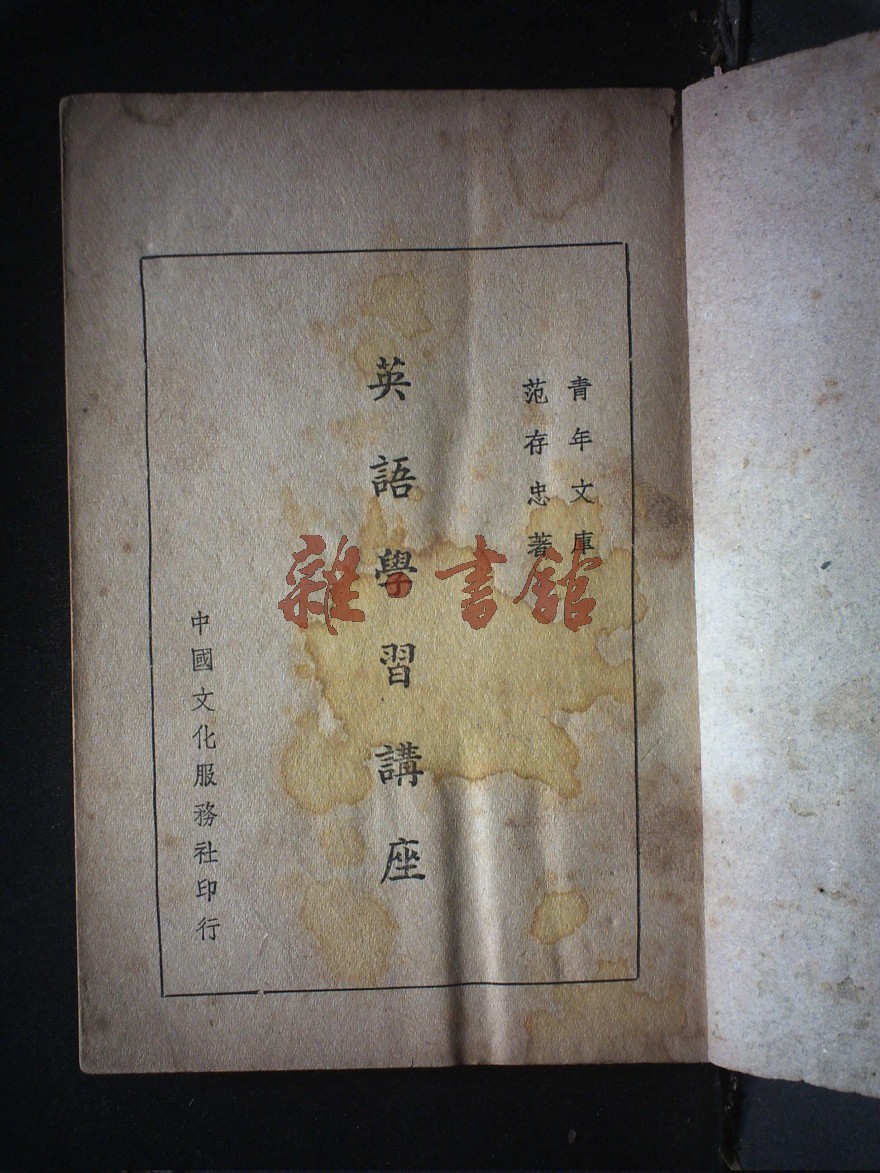 青年文庫
范存忠著
英語學習講座
中國文化服務社印行
雜書館